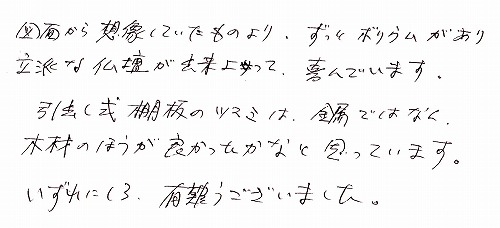 図面から想像していたものより、ずっとボリウムがあり
立派な仏壇が出来上って、喜んでいます。
引出し式棚板のツマミは、金属ではなく、
木材のほうが良かったかなと思っています。
いずれにしろ、有難うございました。